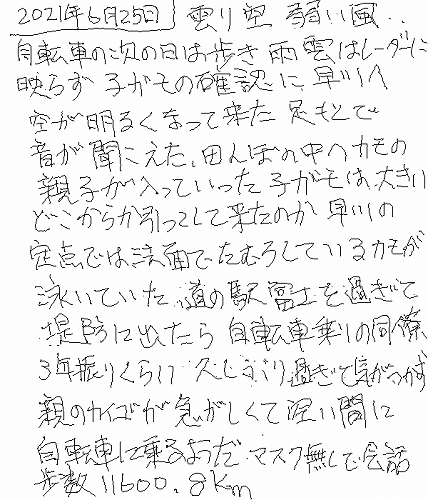 2021年6月25日 曇り空 弱い風..
自転車の次の日は歩き 雨雲はレーダーに
映らず 子ガモの確認に 早川へ
空が明るくなって来た 足もとで
音が聞こえた、田んぼの中へカモの
親子が入っていった 子ガモは、大きい
どこからか引っこして来たのか 早川の
定点では法面でたむろしているカモが
泳いでいた 道の駅 富士を過ぎて
堤防に出たら 自転車乗りの同僚
3年振りくらい 久しぶり過ぎて気がつかず
親のカイゴが 急がしくて 空い間に
自転車に乗るようだ マスク無しで会話
歩数 11600. 8km